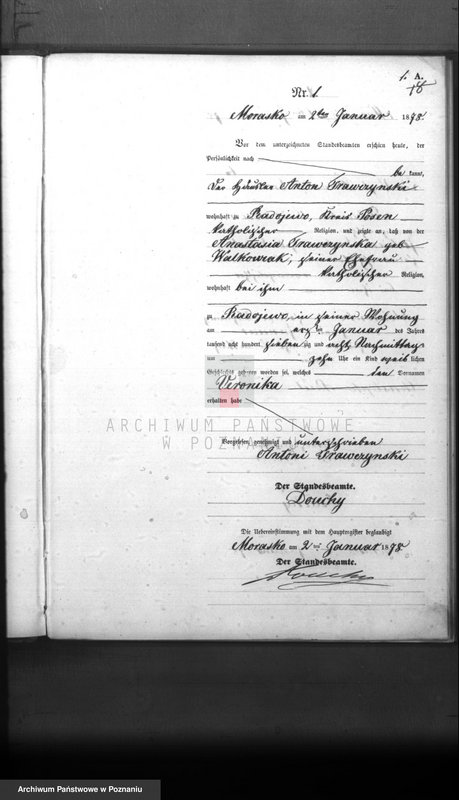 1. A.
18
Nr. 1
Morasko am 2ten Januar 1878.
Vor dem unterzeichneten Standesbeamten erschien heute, der
Persönlichkeit nach
be kannt,
der Häusler Anton Trawczynski
wohnhaft zu Radojewo, Kreis Posen
katholischer Religion, und zeigte an, daß von der
Anastasia Trawczynska geb
Walkowiak, seiner Ehefrau
katholischer Religion,
wohnhaft bei ihm
zu Radojewo, in seiner Wohnung
am Januar des Jahres
tausend acht hundert sieben zig und acht Nachmittag
um zehn Uhr ein Kind weib lichen
Geschlechts geboren worden sei, welches den Vornamen
Veronika
erhalten habe
Vorgelesen, genehmigt und unterschrieben
Antoni Trawczynski
Der Standesbeamte.
Douchy
Die Uebereinstimmung mit dem Hauptregister beglaubigt
Morasko am 2ten Januar 1878
Der Standesbeamte.
Douchy
ARCHIWUM PAŃSTWOWE
W POZNANIU
Archiwum Państwowe w Poznaniu